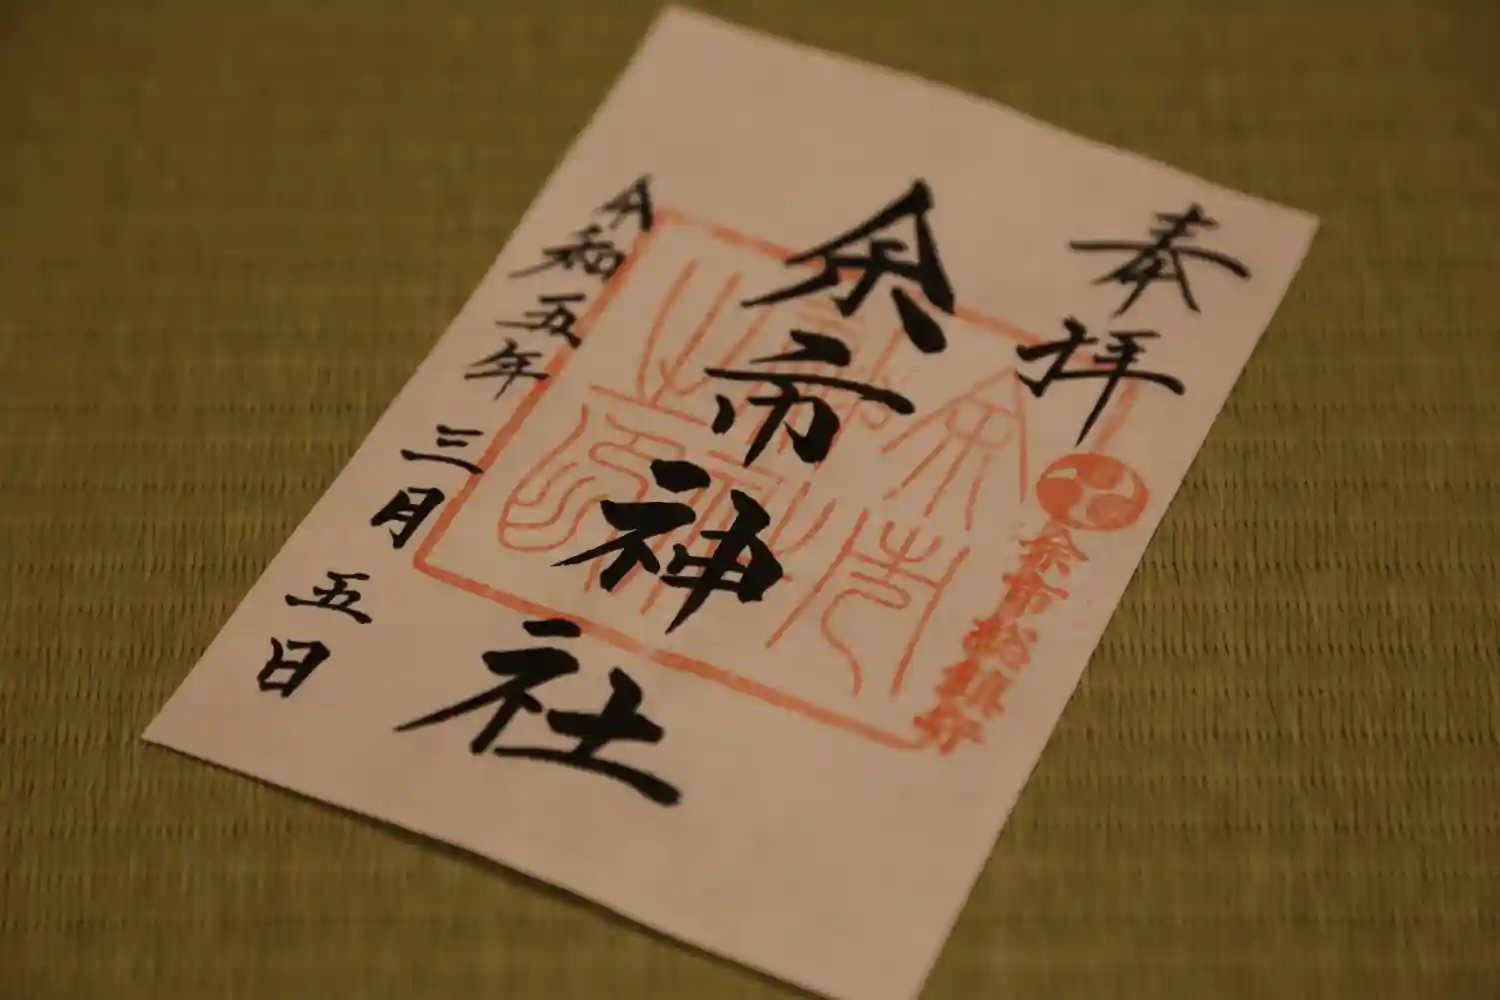 奉拝
余市神社
令和五年三月五日
余市総鎮守